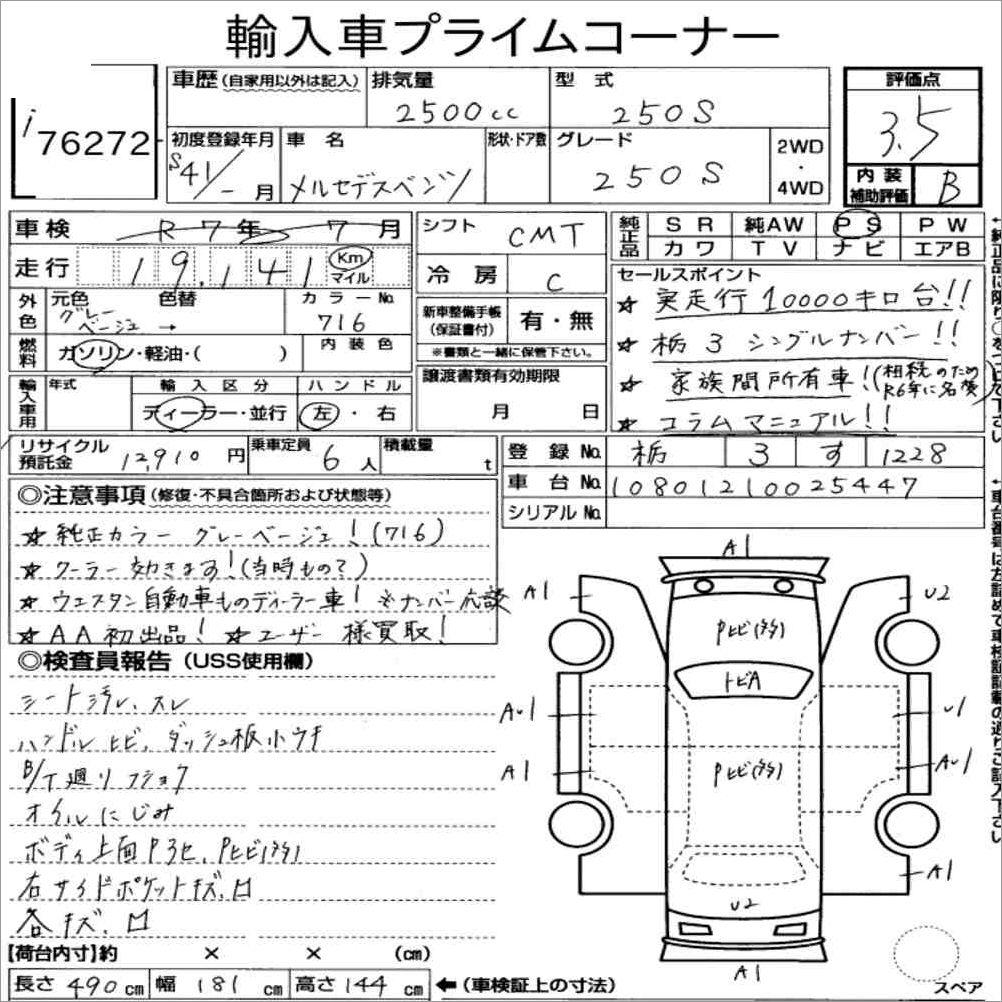 輸入車プライムコーナー
i 76272
車歴(自家用以外は記入)
排気量 2500cc
型式 250S
評価点 3.5
初度登録年月 S41/- 月
車名 メルセデスベンツ
形状・ドア数
グレード 250S
2WD・4WD
内装補助評価 B
車検 R7年 7月
走行 19,141 Km マイル
シフト CMT
冷房 C
純正品 SR 純AW PS PW
カワ TV ナビ エアB
外色 元色 グレーベージュ → 色替
カラーNo. 716
燃料 ガソリン・軽油・( )
内装色
新車整備手帳(保証書付) 有・無
※書類と一緒に保管下さい。
セールスポイント
☆ 実走行10000キロ台!!
☆ 栃3 シングルナンバー!!
☆ 家族間所有車!(相続のためR6年に名変)
☆ コラムマニュアル!!
輸入車用 年式
輸入区分 ディーラー・並行
ハンドル 左・右
譲渡書類有効期限 月 日
リサイクル預託金 12,910円
乗車定員 6人
積載量 t
登録No. 栃 3 す 1228
車台No. 10801210025447
シリアルNo.
◎注意事項(修復・不具合箇所および状態等)
☆ 純正カラー グレーベージュ!(716)
☆ クーラー効きます!(当時もの?)
☆ ウエスタン自動車ものディーラー車! ※ナンバー応談
☆ AA初出品! ☆ユーザー様買取!
◎検査員報告(USS使用欄)
シート汚レ、スレ
ハンドルヒビ、ダッシュ板小ウキ
B/T廻リフショク
オイルにじみ
ボディ上面Pヨセ、Pヒビ(多)
右サイドポケットキズ、凹
各キズ、凹
A1
A1
U2
Pヒビ(多)
トビA
AU1
U1
A1
Pヒビ(多)
AU1
A1
U2
A1
スペア
【荷台内寸】約 × × (cm)
長さ 490cm 幅 181cm 高さ 144cm ←(車検証上の寸法)